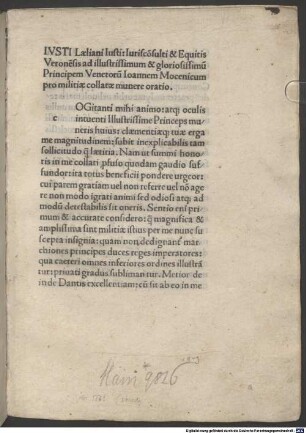 IVSTI Lælíaní Iustí: Iuriscõsulti & Equitis
Veronēsis ad illustrissimum & gloriosissimũ
Principem Venetorũ Ioannem Mocenicum
pro militiæ collatæ munere oratio.
OGitanti mihi animo atq; oculis
c intuenti Illustrissime Princeps mu
neris huius: clæmentiæq; tuæ erga
me magnitudinem: subit inexplicabilis tam
sollicitudo q̃ lætitia. Nam ut summi hono
ris in me collati ,pfuso quodam gaudio suf
fundor: ita totius beneficii pondere urgeor:
cui parem gratiam uel non referre uel nõ age
re non modo igrati animi sed odiosi atq; ad
modũ detestabilis sit oneris. Sentio eni pri
mum & accurate considero: q̃ magnifica &
amplissima sint militiæ istius per me nunc su
scepta insignia: quam non dedignant̃ mar
chiones principes duces reges imperatores:
qua cæteri omnes inferiores ordines illustrã
tur: priuati gradus sublimantur. Metior de
inde Dantis excellentiam: cũ sit ab eo in me
Hain 9826